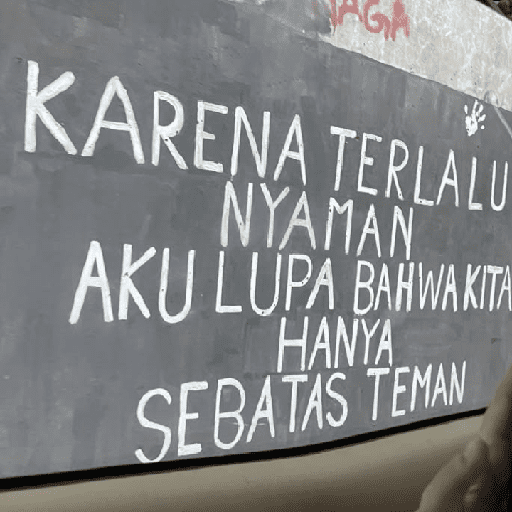 JAGA
KARENA TERLALU
NYAMAN
AKU LUPA BAHWA KITA
HANYA
SEBATAS TEMAN